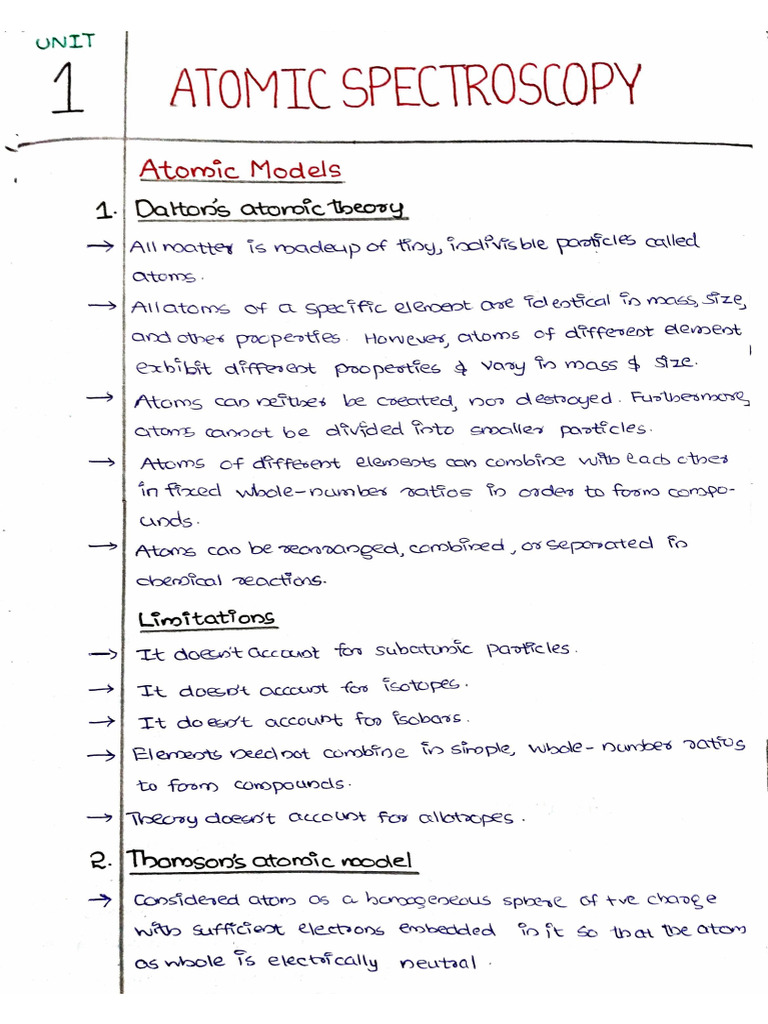 UNIT
1 ATOMIC SPECTROSCOPY
Atomic Models
1. Dalton's atomic theory
→ All matter is madeup of tiny, indivisible particles called
atoms.
→ All atoms of a specific element are identical in mass, size,
and other properties. However, atoms of different element
exhibit different properties & vary in mass & size.
→ Atoms can neither be created, nor destroyed. Furthermore,
atoms cannot be divided into smaller particles.
→ Atoms of different elements can combine with each other
in fixed whole-number ratios in order to form compo-
unds.
→ Atoms can be rearranged, combined, or separated in
chemical reactions.
Limitations
→ It doesn't account for subatomic particles.
→ It doesn't account for isotopes.
→ It doesn't account for isobars.
→ Elements need not combine in simple, whole-number ratios
to form compounds.
→ Theory doesn't account for allotropes.
2. Thomson's atomic model
→ Considered atom as a homogeneous sphere of +ve charge
with sufficient electrons embedded in it so that the atom
as whole is electrically neutral.